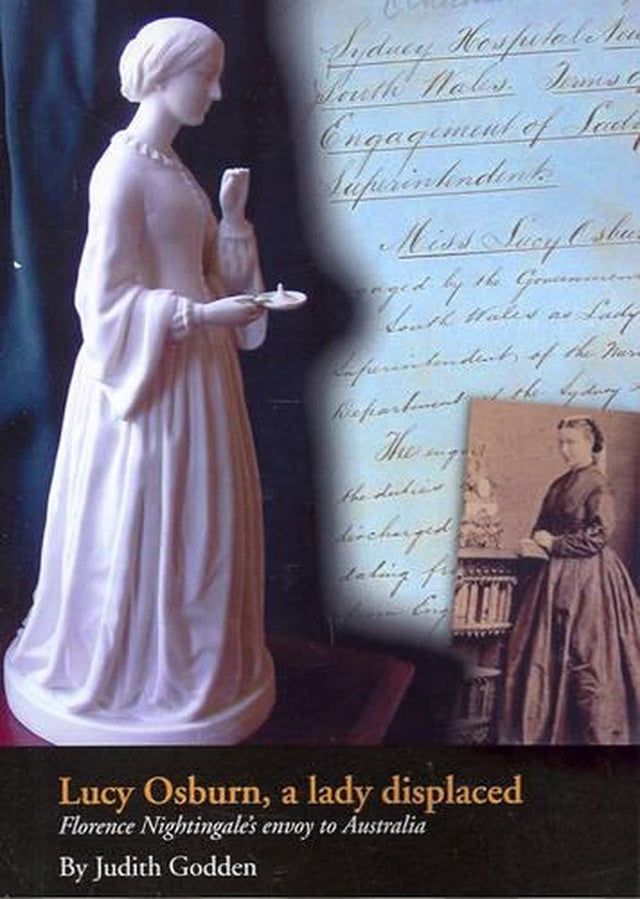 Sydney Hospital New
South Wales. Terms of
Engagement of Lady
Superintendent.
Miss Lucy Osbur
gaged by the Governmen
South Wales as Lady
Superintendent of the Nur
Department of the Sydney
The enga
the duties
discharged
dating fr
from Eng
Lucy Osburn, a lady displaced
Florence Nightingale's envoy to Australia
By Judith Godden